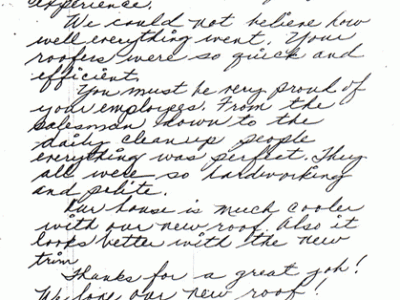 experience.
We could not believe how
well everything went. Your
roofers were so quick and
efficient.
You must be very proud of
your employees. From the
salesman down to the
daily cleanup people
everything was perfect. They
all were so hardworking
and polite.
Our house is much cooler
with our new roof. Also it
looks better with the new
trim
Thanks for a great job!
We love our new roof!